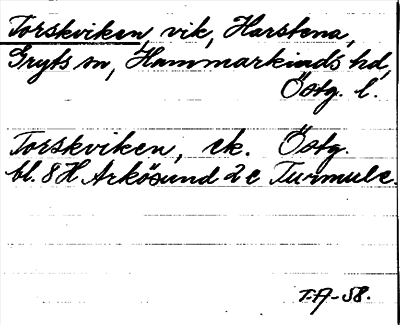 Torskviken, vik, Harstena,
Gryts sn, Hammarkinds hd,
Östg. l.
Torskviken, ek. Östg.
bl. 8 H Arkösund 2 c Turmulc.
T.A-58.